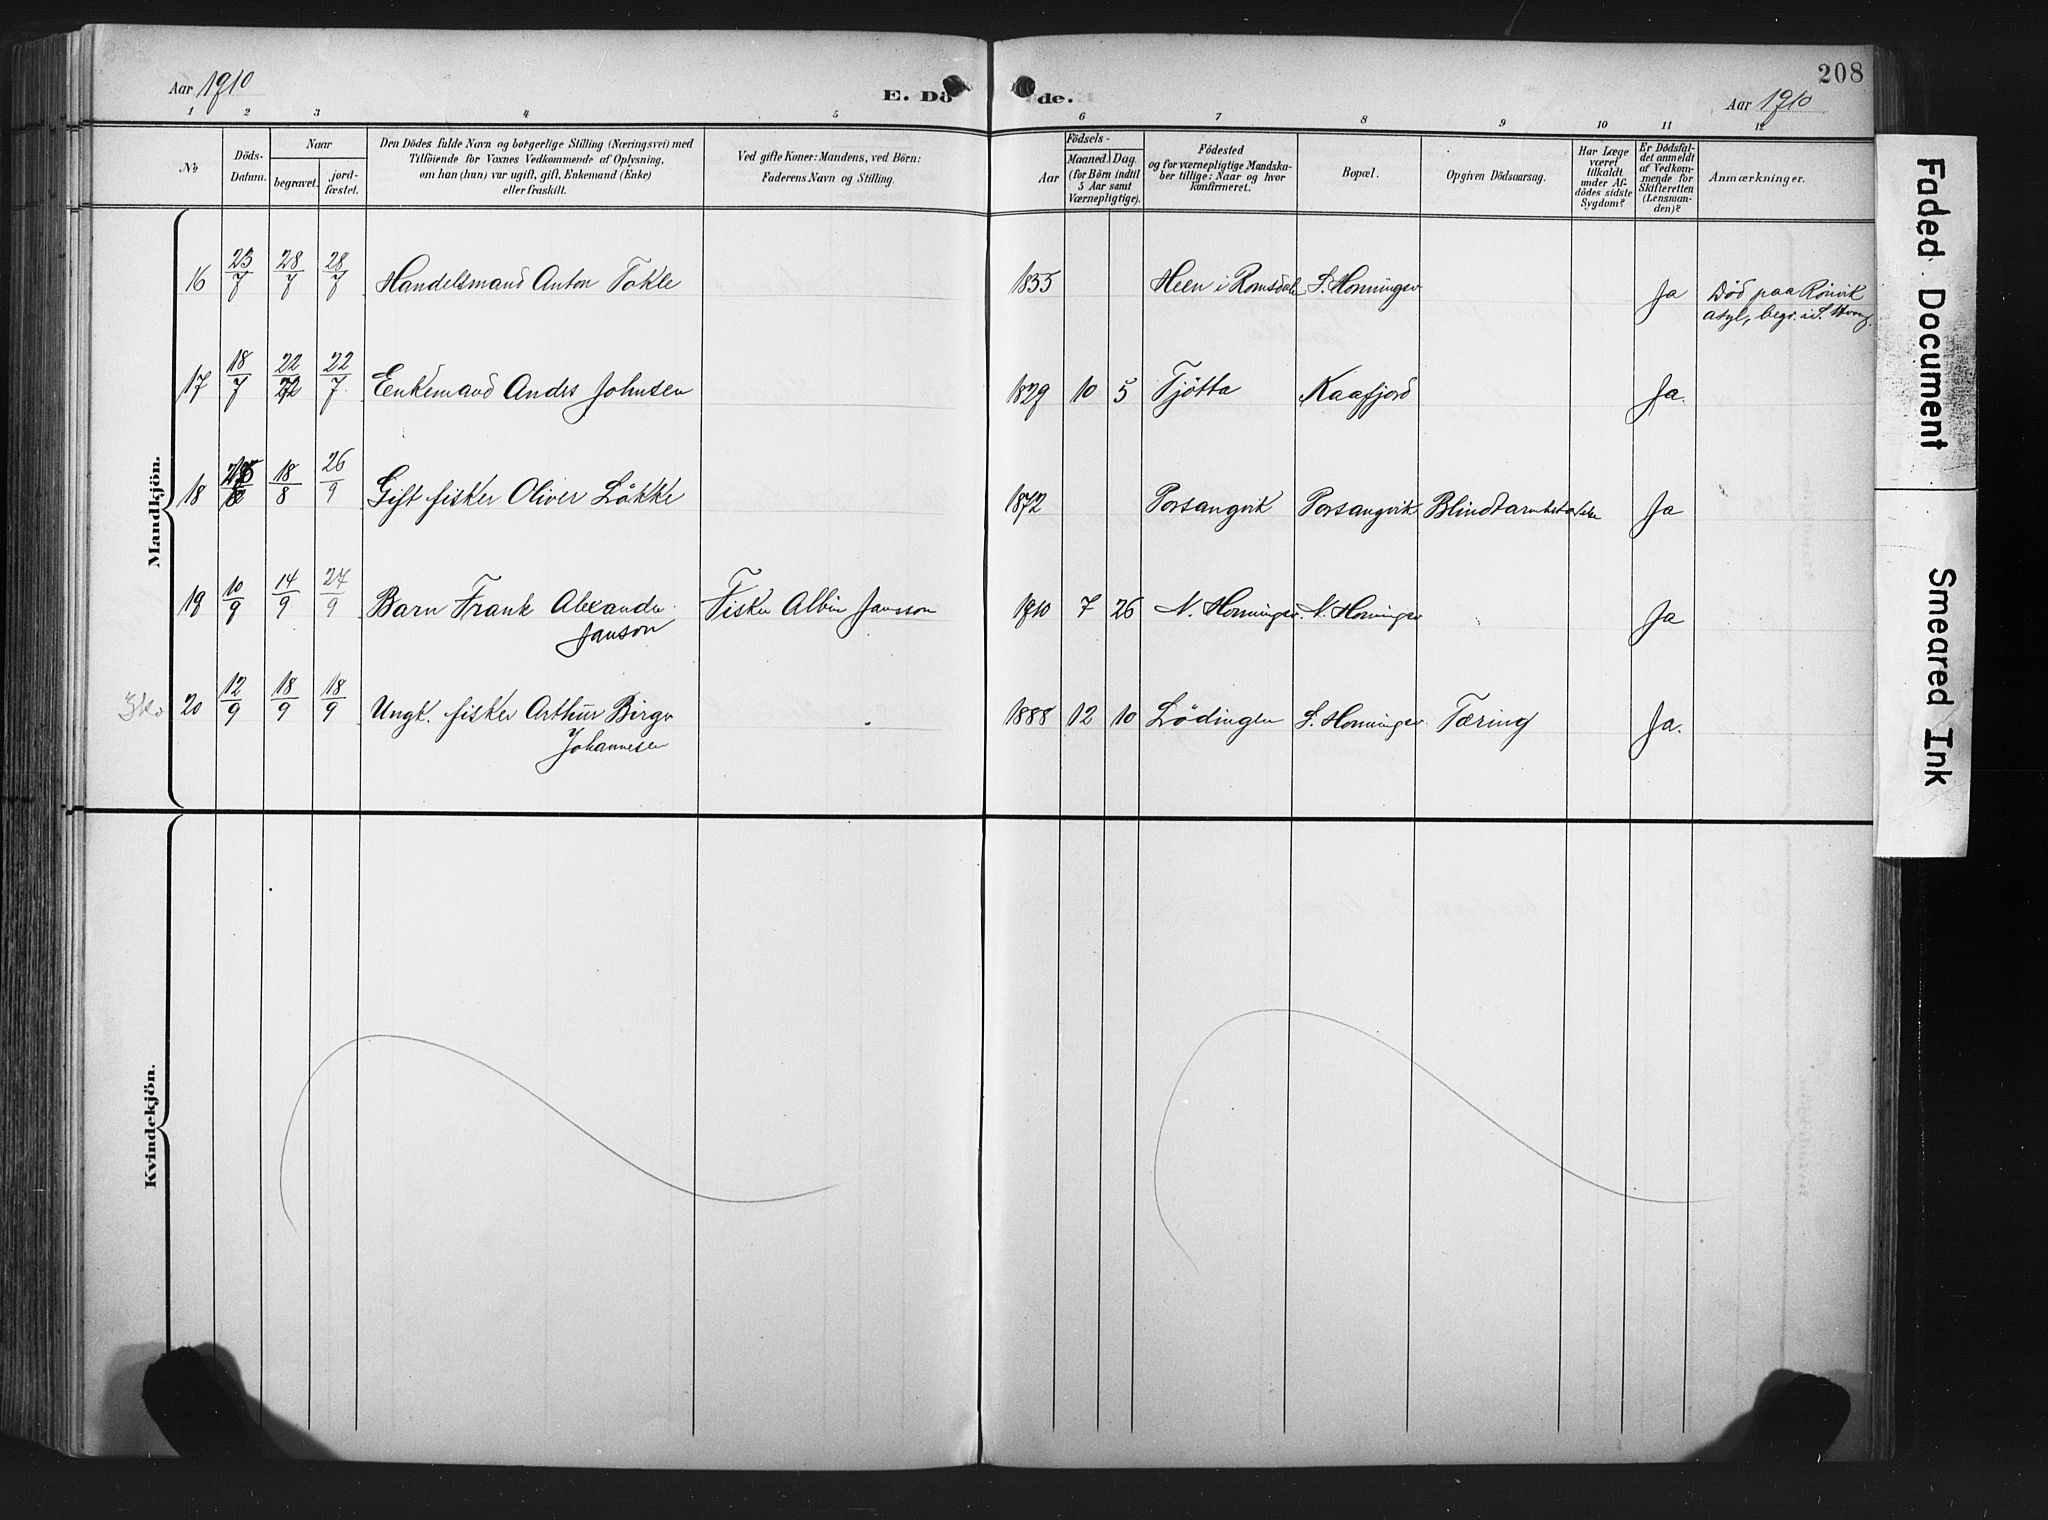 208
Aar 1910
E. Dö de.
Aar 1910
1 2 3 4 5 6 7 8 9 10 11 12
No
Döds-
Datum.
Naar
begravet.
jord-
fæstet.
Den Dödes fulde Navn og borgerlige Stilling (Næringsvei) med
Tilföiende for Voxnes Vedkommende af Oplysning,
om han (hun) var ugift, gift, Enkemand (Enke)
eller fraskilt.
Ved gifte Koner: Mandens, ved Börn:
Faderens Navn og Stilling.
Födsels-
Aar
Maaned.
Dag.
(for Börn indtil
5 Aar samt
Værnepligtige).
Födested
og for værnepligtige Mandska-
ber tillige: Naar og hvor
konfirmeret.
Bopæl.
Opgiven Dödsaarsag.
Har Læge
været
tilkaldt
under Af-
dödes sidste
Sygdom?
Er Dödsfal-
det anmeldt
af Vedkom-
mende for
Skifteretten
(Lensman-
den)?
Anmærkninger.
Mandkjön.
16 23/7 28/7 28/7 Handelsmand Anton Takle 1855 Heen i Romsdalen S. Honningsv Ja Död paa Rönvik
asyl, begr. i S. Honng.
17 18/7 22/7 22/7 Enkemand Andrs Johnsen 1829 10 5 Tjötta Kaafjord Ja.
18 18/8 26/9 Gift fisker Oliver Lökke 1872 Porsangvik Porsangvik Ja
19 10/9 14/9 24/9 Barn Frank Alexander Fisker Albin Jansson 1910 7 26 N. Honningsv. N. Honningsv Ja
Janson
20 12/9 18/9 18/9 Ungk. fisker Arthur Birger 1888 12 10 Lödingen S. Honningsv. Tæring Ja.
Johannesen
Kvindekjön.
Faded Document
Smeared Ink